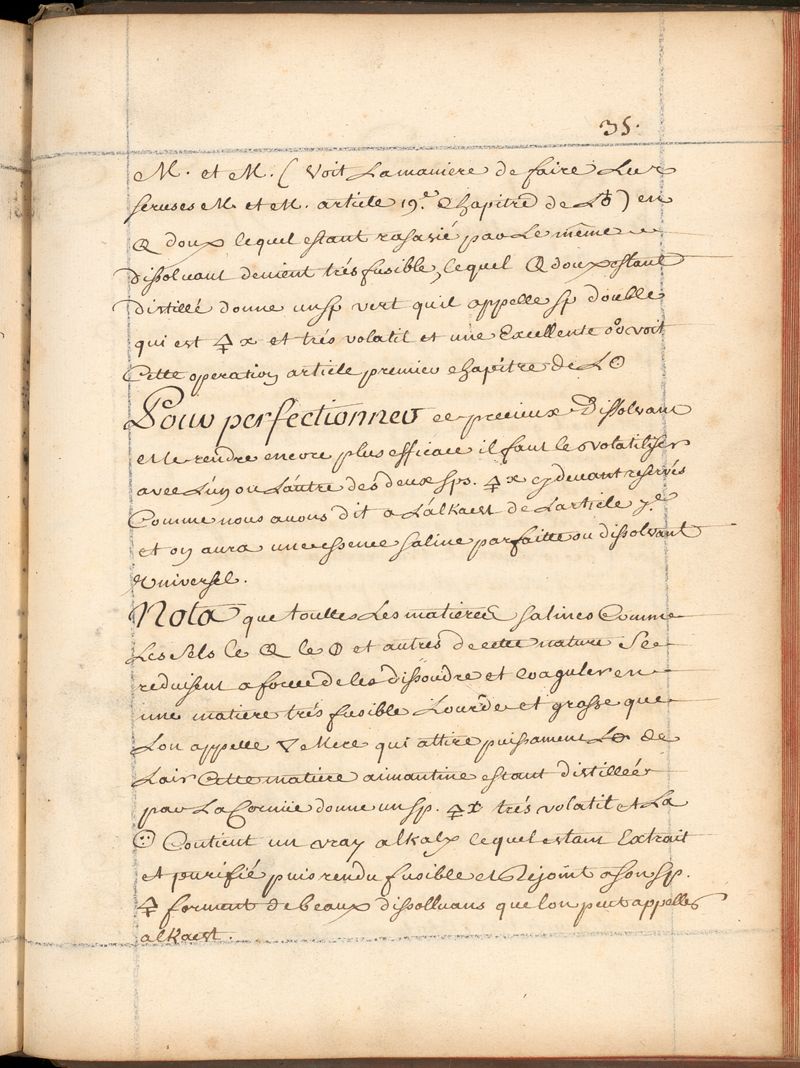 35.
M. et M. ( Voit La maniere de faire Leur
seruses M et M. article 19.e Chapitre de L♄ ) en
doux lequel estant rasasié par Le même
dissoluant devient trés fusible, lequel doux estant
distillé donne un sp vert quil appelle sp double
qui est 🜍 x et trés volatil et une Excellente voit
Cette operation article premier chapitre de L☉
Pour perfectionner ce precieux Dissolvant
et le rendre encore plus efficace il faut le volatiliser
avec L'un ou L'autre des deux sps. 🜍 x cy devant reservés
Comme nous avons dit a L'alkaest de L'article 7.e
et on aura une essence saline parfaitte ou dissolvant
Universel.
Nota que touttes Les matieres salines Comme
Les sels le le et autres de cette nature Se
reduisent a force de les dissoudre et coaguler en
une matiere trés fusible Lourde et grasse que
Lon appelle qui attire puissament de
Lair Cette matiere aimantine estant distilleér
par La Cornüe donne un sp. 🜍 x trés volatil et La
Contient un vray alkaly lequel estant Extrait
et purifié puis rendu fusible et Rejoint a son sp.
🜍 forment de beaux dissolluans que lon peut appeller
alkaest.